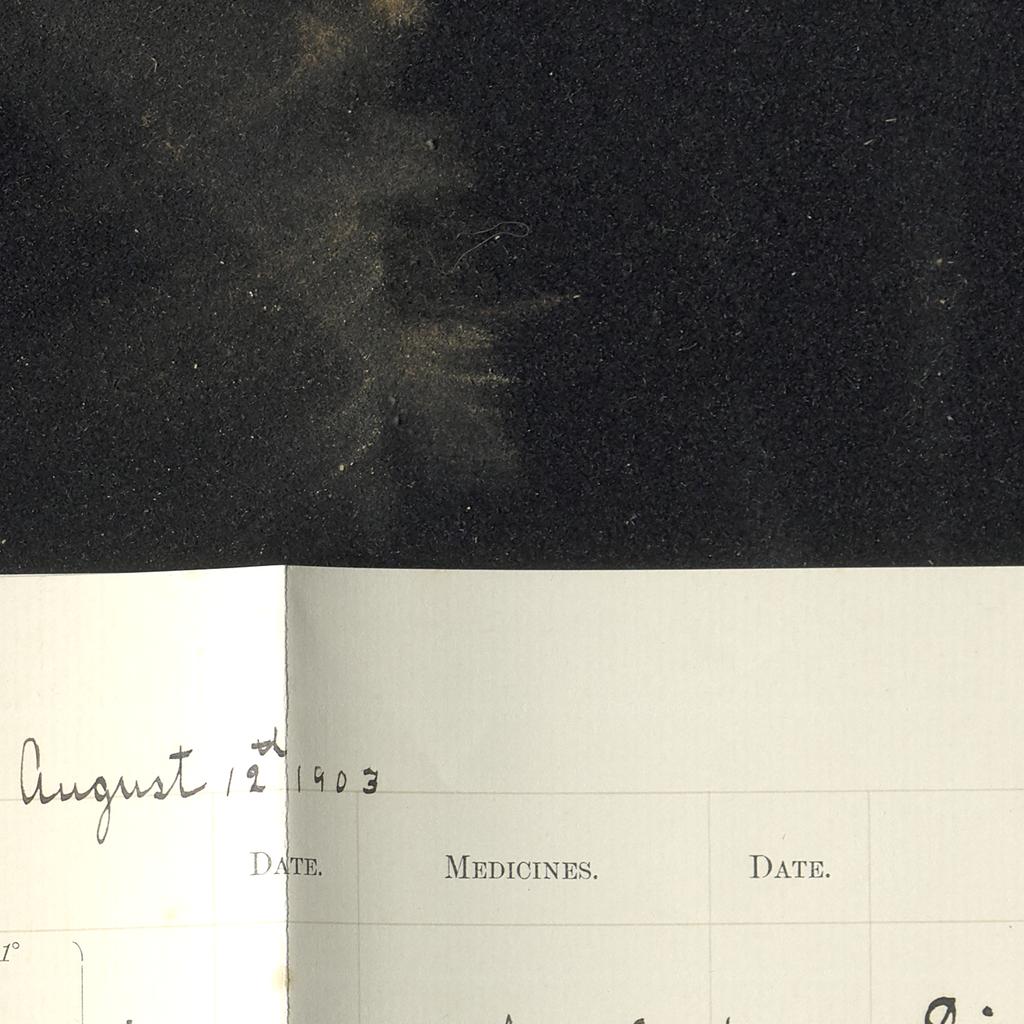 August 12th 1903
DATE. MEDICINES. DATE.
1°